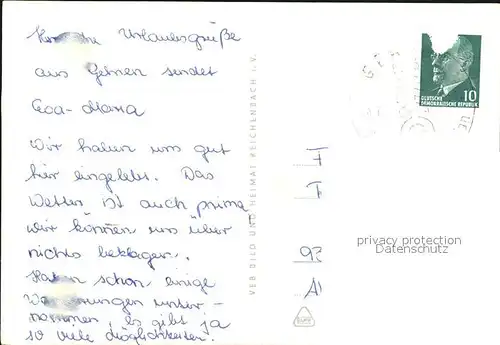 Urlaubsgrüße
aus Gehren sendet
Eva-Maria
Wir haben uns gut
hier eingelebt. Das
Wetter ist auch prima
wir können uns über
nichts beklagen.
Haben schon einige
unter-
nommen, es gibt ja
so viele Möglichkeiten.
VEB BILD UND HEIMAT REICHENBACH i. V.
10
DEUTSCHE
DEMOKRATISCHE REPUBLIK
privacy protection
Datenschutz